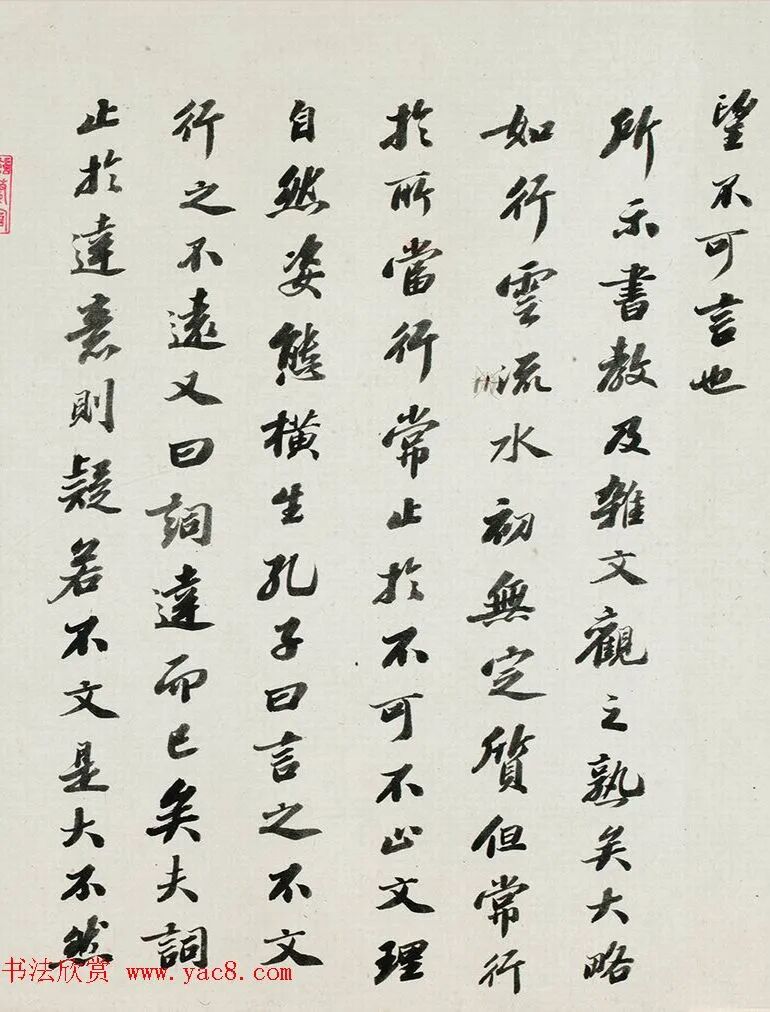 望不可言也
所示書教及雜文觀之熟矣大略
如行雲流水初無定質但常行
於所當行常止於不可不止文理
自然姿態橫生孔子曰言之不文
行之不遠又曰詞達而已矣夫詞
止於達意則疑若不文是大不然
书法欣赏 www.yac8.com